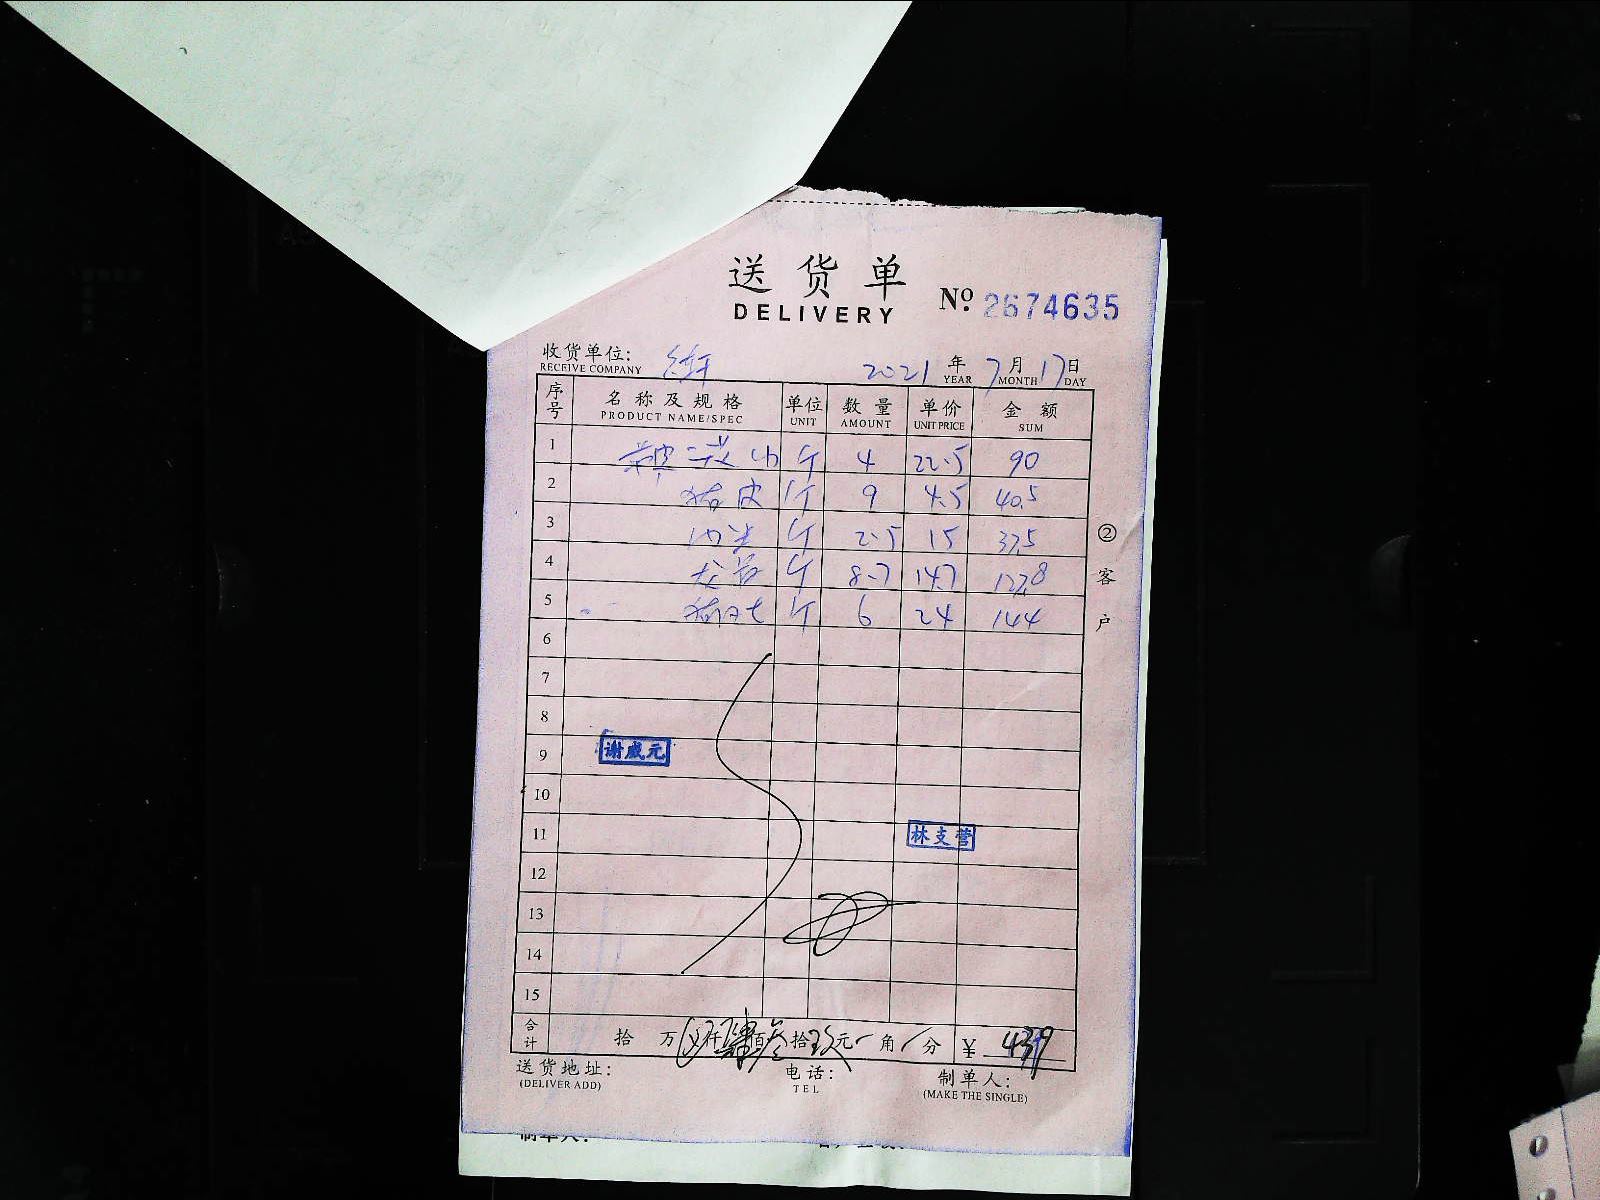 送货单
DELIVERY
No. 2674635
收货单位:
RECEIVE COMPANY
2021 年 7 月 17 日
YEAR MONTH DAY
序号 名称及规格 单位 数量 单价 金额
PRODUCT NAME/SPEC UNIT AMOUNT UNIT PRICE SUM
1 斤 4 22.5 90
2 猪皮 斤 9 4.5 40.5
3 斤 2.5 15 37.5
4 龙骨 斤 8.7 14.7 127.8
5 斤 6 24 144
6
7
8
9 谢威元
10
11 林支营
12
13
14
15
合计 拾 万 仟 肆 佰 叁 拾 玖 元 角 分 ¥ 439
送货地址: 电话: 制单人:
(DELIVER ADD) TEL (MAKE THE SINGLE)
②客户
制单人: